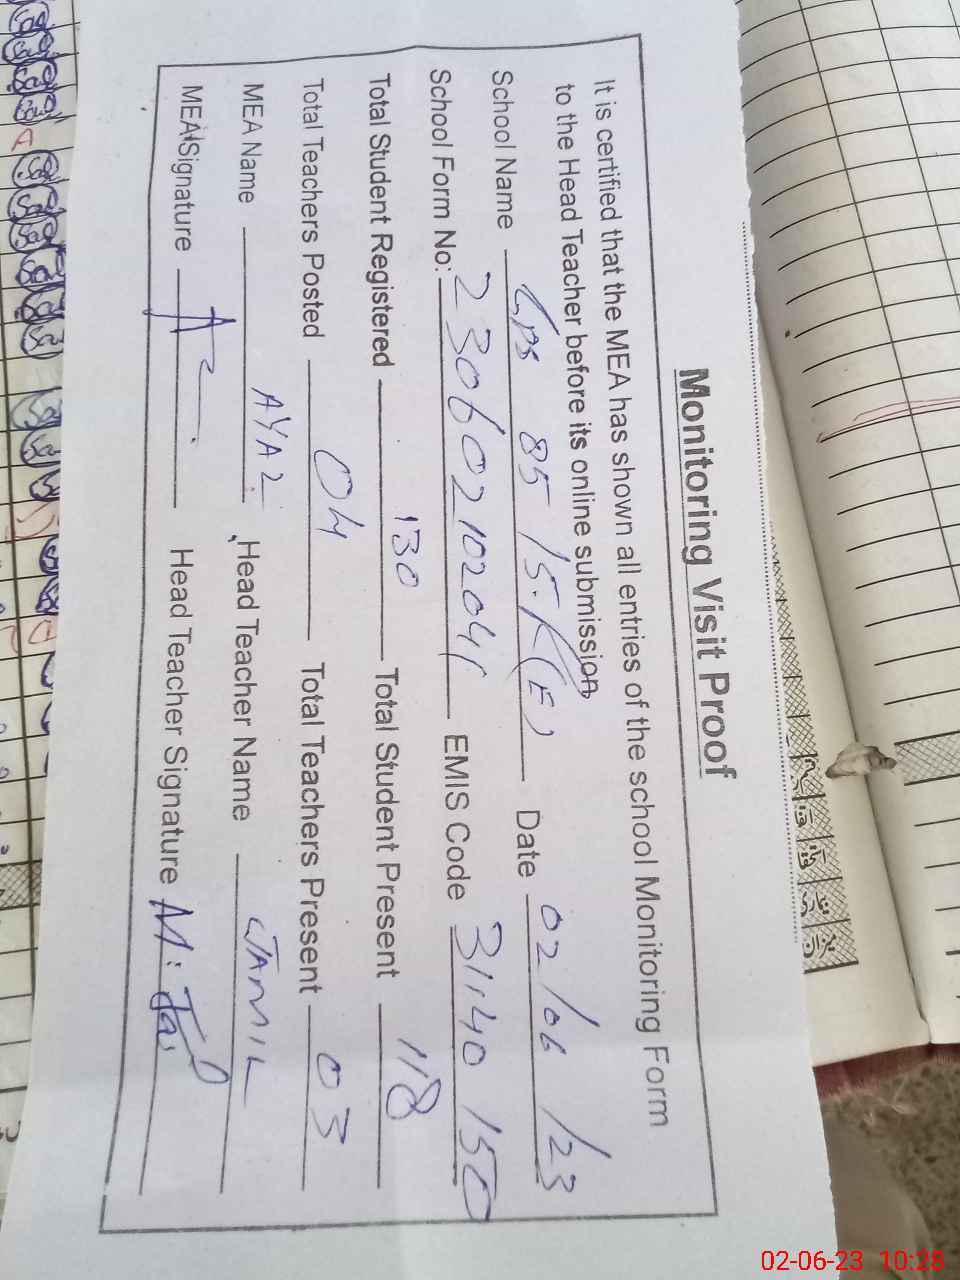 Monitoring Visit Proof
It is certified that the MEA has shown all entries of the school Monitoring Form
to the Head Teacher before its online submission,
School Name 85 /5.R(E) Date 02/06/23
School Form No: 23060210204 EMIS Code 31140 150
Total Student Registered 130 Total Student Present 118
Total Teachers Posted 04 Total Teachers Present 03
MEA Name AYAZ Head Teacher Name JAMIL
MEA Signature Head Teacher Signature M:
02-06-23 10:28